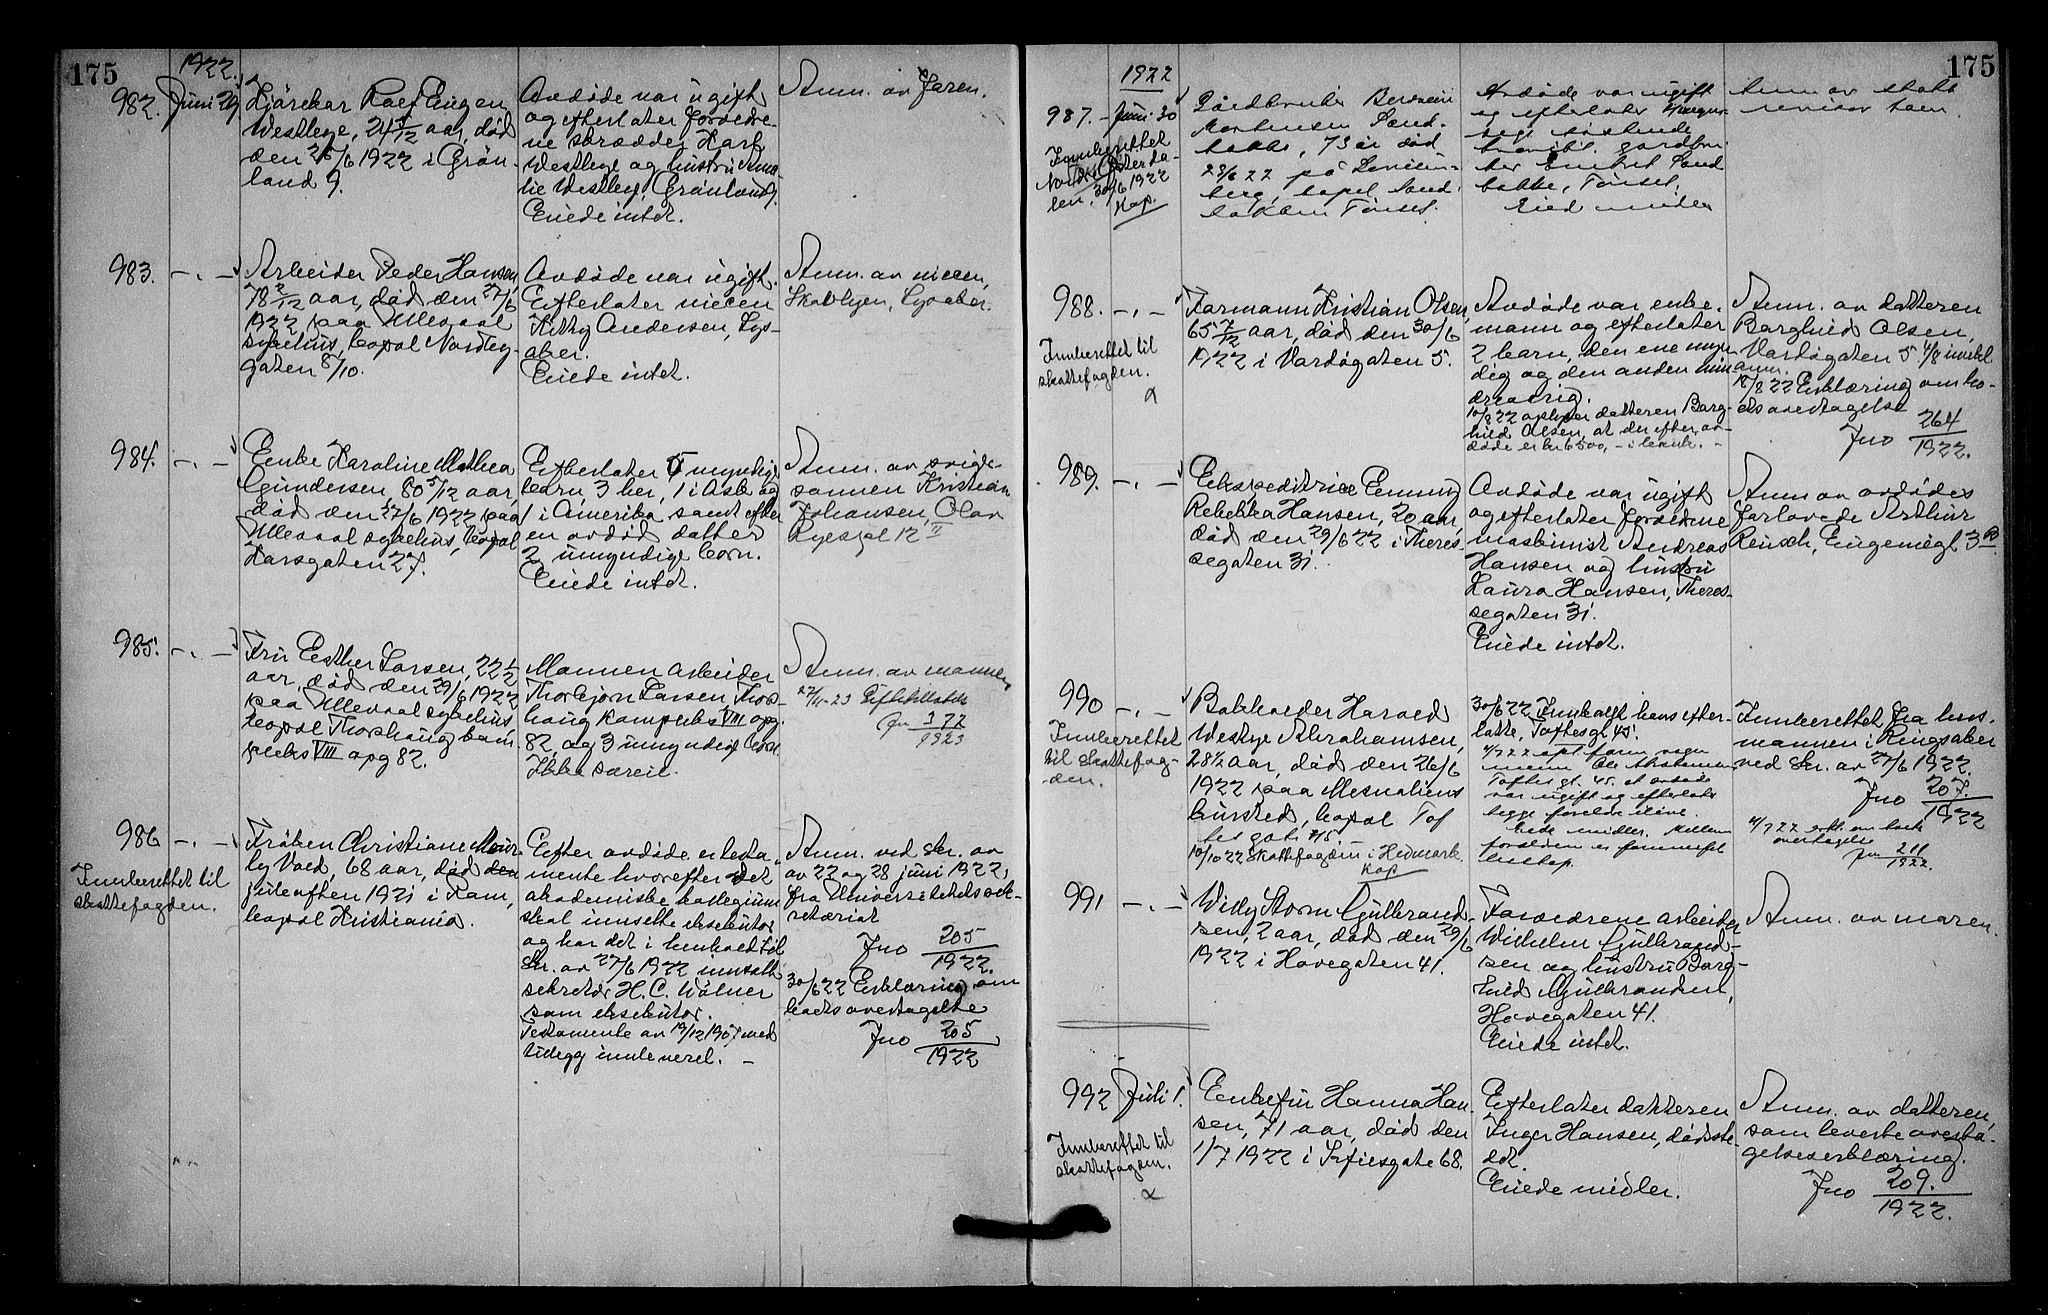 175
1922.
982. Juni 29.
Westlye, 24 aar, død
den 1922 i Grøn-
land 9.
Avdøde var ugift
og efterlater foreldre-
ne skrædder Karl
Westlye og hustru Ama-
lie Westlye, Grønland 9.
Eiede intet.
Anm. av faren.
983. -"-
Arbeider Peder Hansen,
78 2/12 aar, død den 27/6
1922 paa Ullevaal
sykehus, bopæl Nordby-
gaten 8/10.
Avdøde var ugift.
Efterlater niecen
Kitty Andersen, Lys-
aker.
Eiede intet.
Anm. av niecen,
Lysaker.
984. -"-
Enke Karoline Mathea
Gundersen, 80 5/12 aar,
død den 27/6 1922 paa
Ullevaal sykehus, bopæl
Karsgaten 27.
Efterlater 5 myndige
barn 3 her, 1 i Ask og
1 i Amerika samt efter
en avdød datter
2 umyndige barn.
Eiede intet.
Anm. av sviger-
sønnen Kristian
Johansen, Olav
Ryespl 12 II
985. -"-
Fru Esther Larsen, 22 1/2
aar, død den 29/6 1922
paa Ullevaal sykehus
bopæl Thorshaug kom-
pleks VIII opg 82.
Mannen arbeider
Thorbjørn Larsen, Thors-
haug kompleks VIII opg.
82, og 3 umyndige barn
Ikke særeie.
Anm. av mannen
27/11-23 Giftetillatelse
Jno 372
1923
986 -"-
Innberettet til
skattefogden.
Frøken Christiane
Vold, 68 aar, død
juleaften 1921 i Rom,
bopæl Kristiania.
Efter avdøde er testa-
mente hvorefter det
akademiske kollegium
skal innsette eksekutor
og har det i henhold til
skr. av 27/6 1922 innsatt
sekretær H. C.
som eksekutor.
Testamente av 19/12 1907 med
tillegg innleveret. -
Anm. ved skr. av
av 22 og 28 juni 1922,
fra Universitetets sek-
retariat
Jno 205
1922.
30/6 22 Erklæring om
boets overtagelse
Jno 205
1922
175
1922
987. - Juni 30
Innberettet
Nordre Østerda-
len, 30/6 1922
Kap.
Gårdbruker
Mortensen Sand-
bakken, 73 år død
28/6 22 på
berg, bopæl Sand-
bakken Tönset.
Avdøde var ugift
og efterlater
gårdbru-
ker Sand
bakke, Tönset.
Eied midler
Anm av
988. -"-
Innberettet til
skattefogden.
Formann Kristian Olsen,
65 7/12 aar, død den 30/6
1922 i Vardøgaten 5.
Avdøde var enke-
mann og efterlater
2 barn, den ene myn-
dig og den anden min-
dreaarig.
10/8 22 oplyser datteren Borg-
hild Olsen, at der efter av-
døde er kr 6500,- i bank. -
Anm. av datteren
Borghild Olsen,
Vardøgaten 5. 4/8 innkl.
anm.
18/8 22 Erklæring om bo-
ets overtagelse
Jno 264
1922.
989. -"-
Ekspeditrice Emmy
Rebekka Hansen, 20 aar,
død den 29/6 22 i There-
segaten 31.
Avdøde var ugift
og efterlater foreldrene
maskinist Andreas
Hansen og hustru
Laura Hansen, There-
segaten 31.
Eiede intet.
Anm av avdødes
forlovede Arthur
Reusch, Eugeniegt 3 B
990 -"-
Innberettet
til skattefog-
den.
Bokholder Harald
Westye Abrahamsen,
28 1/2 aar, død den 26/6
1922 paa Mesnaliens
kursted, bopæl Tof
tes gate 45
10/10 22 skattefogden i Hedmark.
Kap
30/6 22 Innkaldt hens efter-
latte, Toftesgt 45.
Toftes gt. 45. at avdøde
var ugift og efterlater
begge foreldre i live.
Eiede midler. Mellem
foreldrene er formuesfel
lesskap.
Innberettet fra lens-
mannen i Ringsaker
ved skr. av 27/6 1922.
Jno 207.
1922
11/7 22 erkl. om boets
overtagelse
Jno 211
1922.
991 -"-
Willy Storm Gulbrand-
sen, 2 aar, død den 29/6
1922 i Hovegaten 41.
Foreldrene arbeider
Wilhelm Gulbrand-
sen og hustru Borg-
hild Gulbrandsen,
Hovegaten 41.
Eiede intet.
Anm. av moren.
992 Juli 1.
Innberettet til
skattefogden.
Enkefru Hanna Han-
sen, 71 aar, død den
1/7 1922 i Sofiesgate 68.
Efterlater datteren
Inger Hansen, dødsste-
det.
Eiede midler.
Anm. av datteren,
som leverte overta-
gelseserklæring.
Jno 209.
1922.